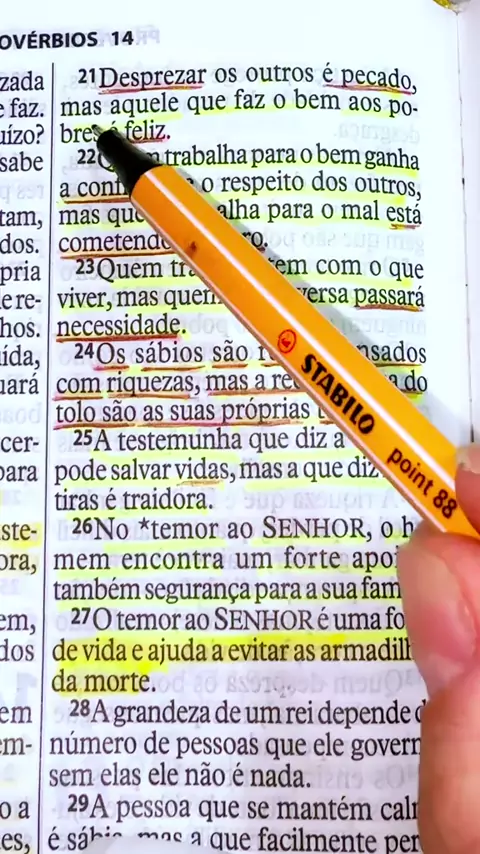 OVÉRBIOS 14
zada
e faz.
uízo?
sabe
tam,
dos.
pria
e re-
hos.
ída,
uará
cer-
para
ste-
ora,
em,
dos
em
em-
o a
es,
21Desprezar os outros é pecado,
mas aquele que faz o bem aos po-
bres é feliz.
22 trabalha para o bem ganha
a o respeito dos outros,
mas alha para o mal está
ro.
23Quem em com o que
viver, mas versa passará
necessidade.
24Os sábios são nsados
com riquezas, mas a do
tolo são as suas próprias
25A testemunha que diz a
pode salvar vidas, mas a que diz
tiras é traidora.
26No *temor ao SENHOR, o h
mem encontra um forte apoi
também segurança para a sua fam
27O temor ao SENHOR é uma fo
de vida e ajuda a evitar as armadil
da morte.
28A grandeza de um rei depende d
número de pessoas que ele govern
sem elas ele não é nada.
29A pessoa que se mantém calm
é sábia, mas a que facilmente per
STABILO
point 88